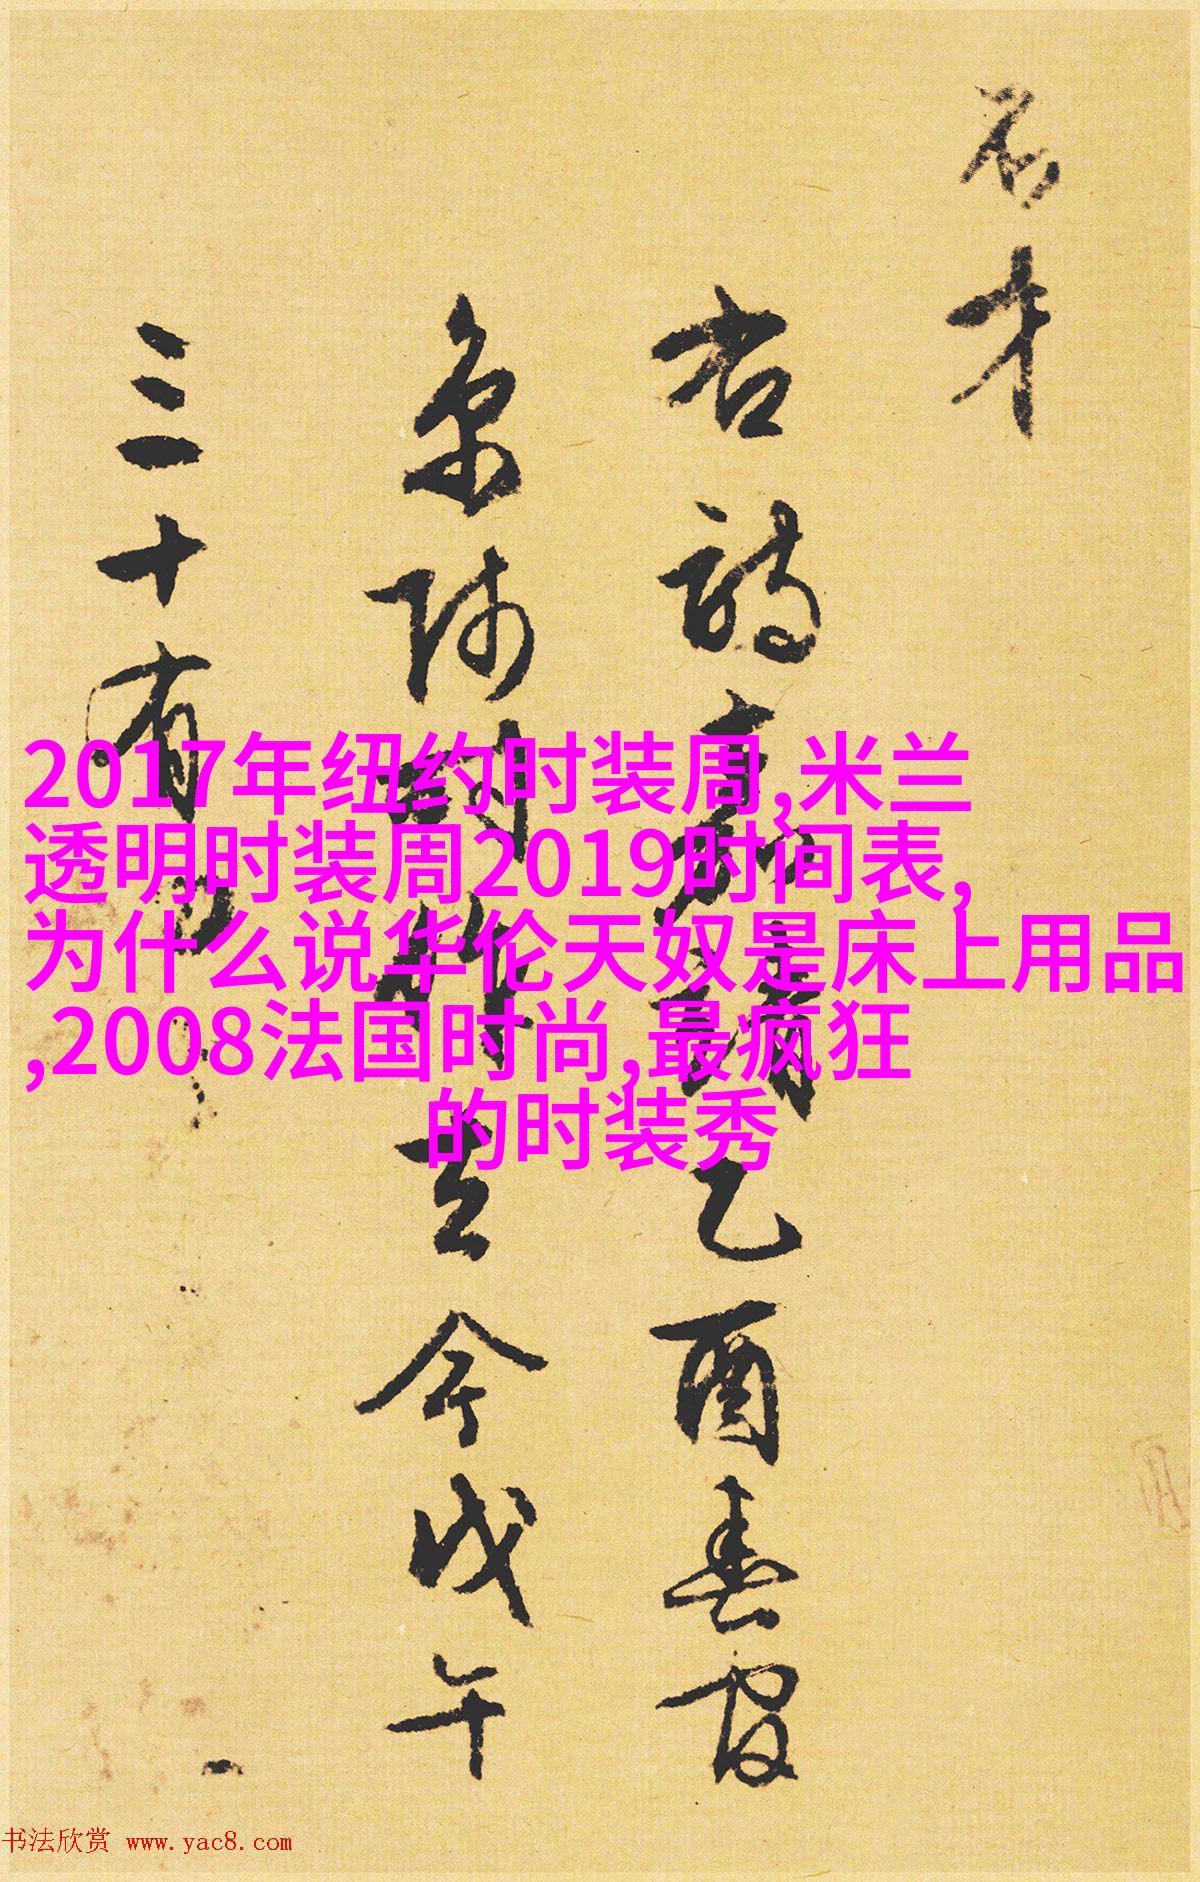 才
右詩 乙酉春官
京师时作去今戊午
三十有
2017年纽约时装周,米兰
透明时装周2019时间表,
为什么说华伦天奴是床上用品
,2008法国时尚,最疯狂
的时装秀
书法欣赏 www.yac8.com